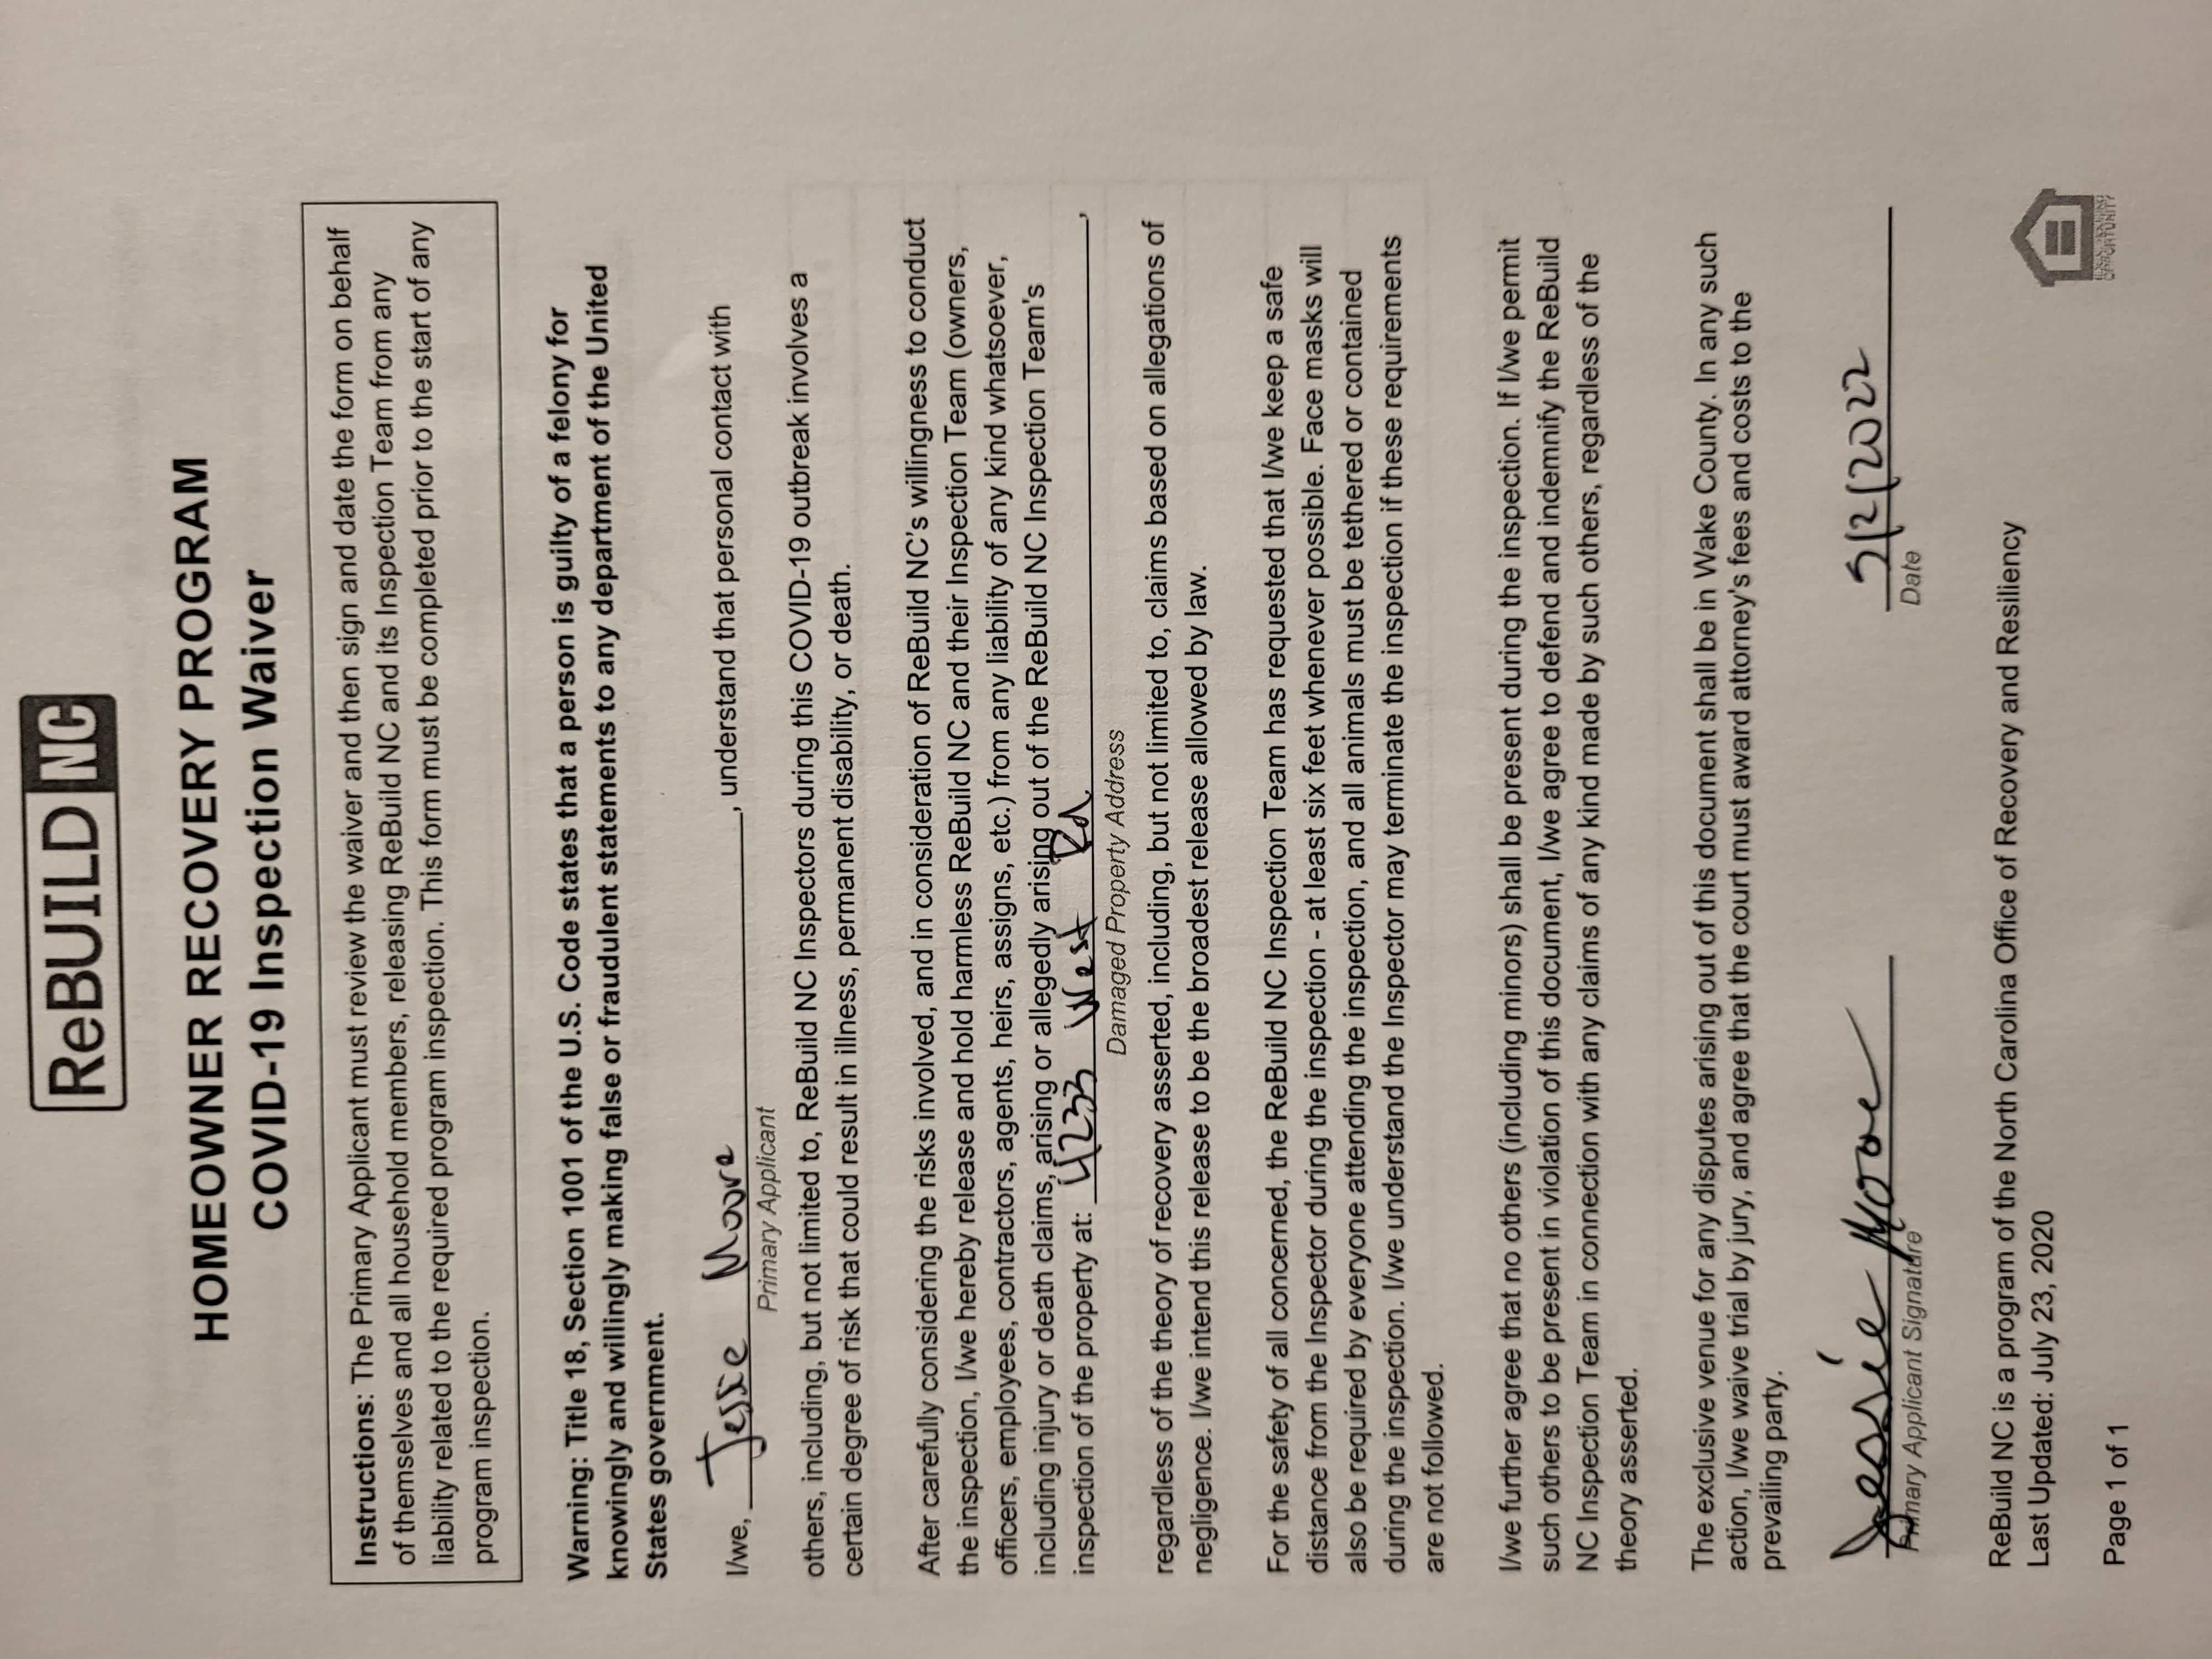 ReBUILD NC
HOMEOWNER RECOVERY PROGRAM
COVID-19 Inspection Waiver
Instructions: The Primary Applicant must review the waiver and then sign and date the form on behalf
of themselves and all household members, releasing ReBuild NC and its Inspection Team from any
liability related to the required program inspection. This form must be completed prior to the start of any
program inspection.
Warning: Title 18, Section 1001 of the U.S. Code states that a person is guilty of a felony for
knowingly and willingly making false or fraudulent statements to any department of the United
States government.
I/we, Jessie Moore, understand that personal contact with
Primary Applicant
others, including, but not limited to, ReBuild NC Inspectors during this COVID-19 outbreak involves a
certain degree of risk that could result in illness, permanent disability, or death.
After carefully considering the risks involved, and in consideration of ReBuild NC's willingness to conduct
the inspection, I/we hereby release and hold harmless ReBuild NC and their Inspection Team (owners,
officers, employees, contractors, agents, heirs, assigns, etc.) from any liability of any kind whatsoever,
including injury or death claims, arising or allegedly arising out of the ReBuild NC Inspection Team's
inspection of the property at: 4233 West Rd,
Damaged Property Address
regardless of the theory of recovery asserted, including, but not limited to, claims based on allegations of
negligence. I/we intend this release to be the broadest release allowed by law.
For the safety of all concerned, the ReBuild NC Inspection Team has requested that I/we keep a safe
distance from the Inspector during the inspection - at least six feet whenever possible. Face masks will
also be required by everyone attending the inspection, and all animals must be tethered or contained
during the inspection. I/we understand the Inspector may terminate the inspection if these requirements
are not followed.
I/we further agree that no others (including minors) shall be present during the inspection. If I/we permit
such others to be present in violation of this document, I/we agree to defend and indemnify the ReBuild
NC Inspection Team in connection with any claims of any kind made by such others, regardless of the
theory asserted.
The exclusive venue for any disputes arising out of this document shall be in Wake County. In any such
action, I/we waive trial by jury, and agree that the court must award attorney's fees and costs to the
prevailing party.
Jessie Moore
Primary Applicant Signature
3/2/2022
Date
ReBuild NC is a program of the North Carolina Office of Recovery and Resiliency
Last Updated: July 23, 2020
Page 1 of 1
OPPORTUNITY